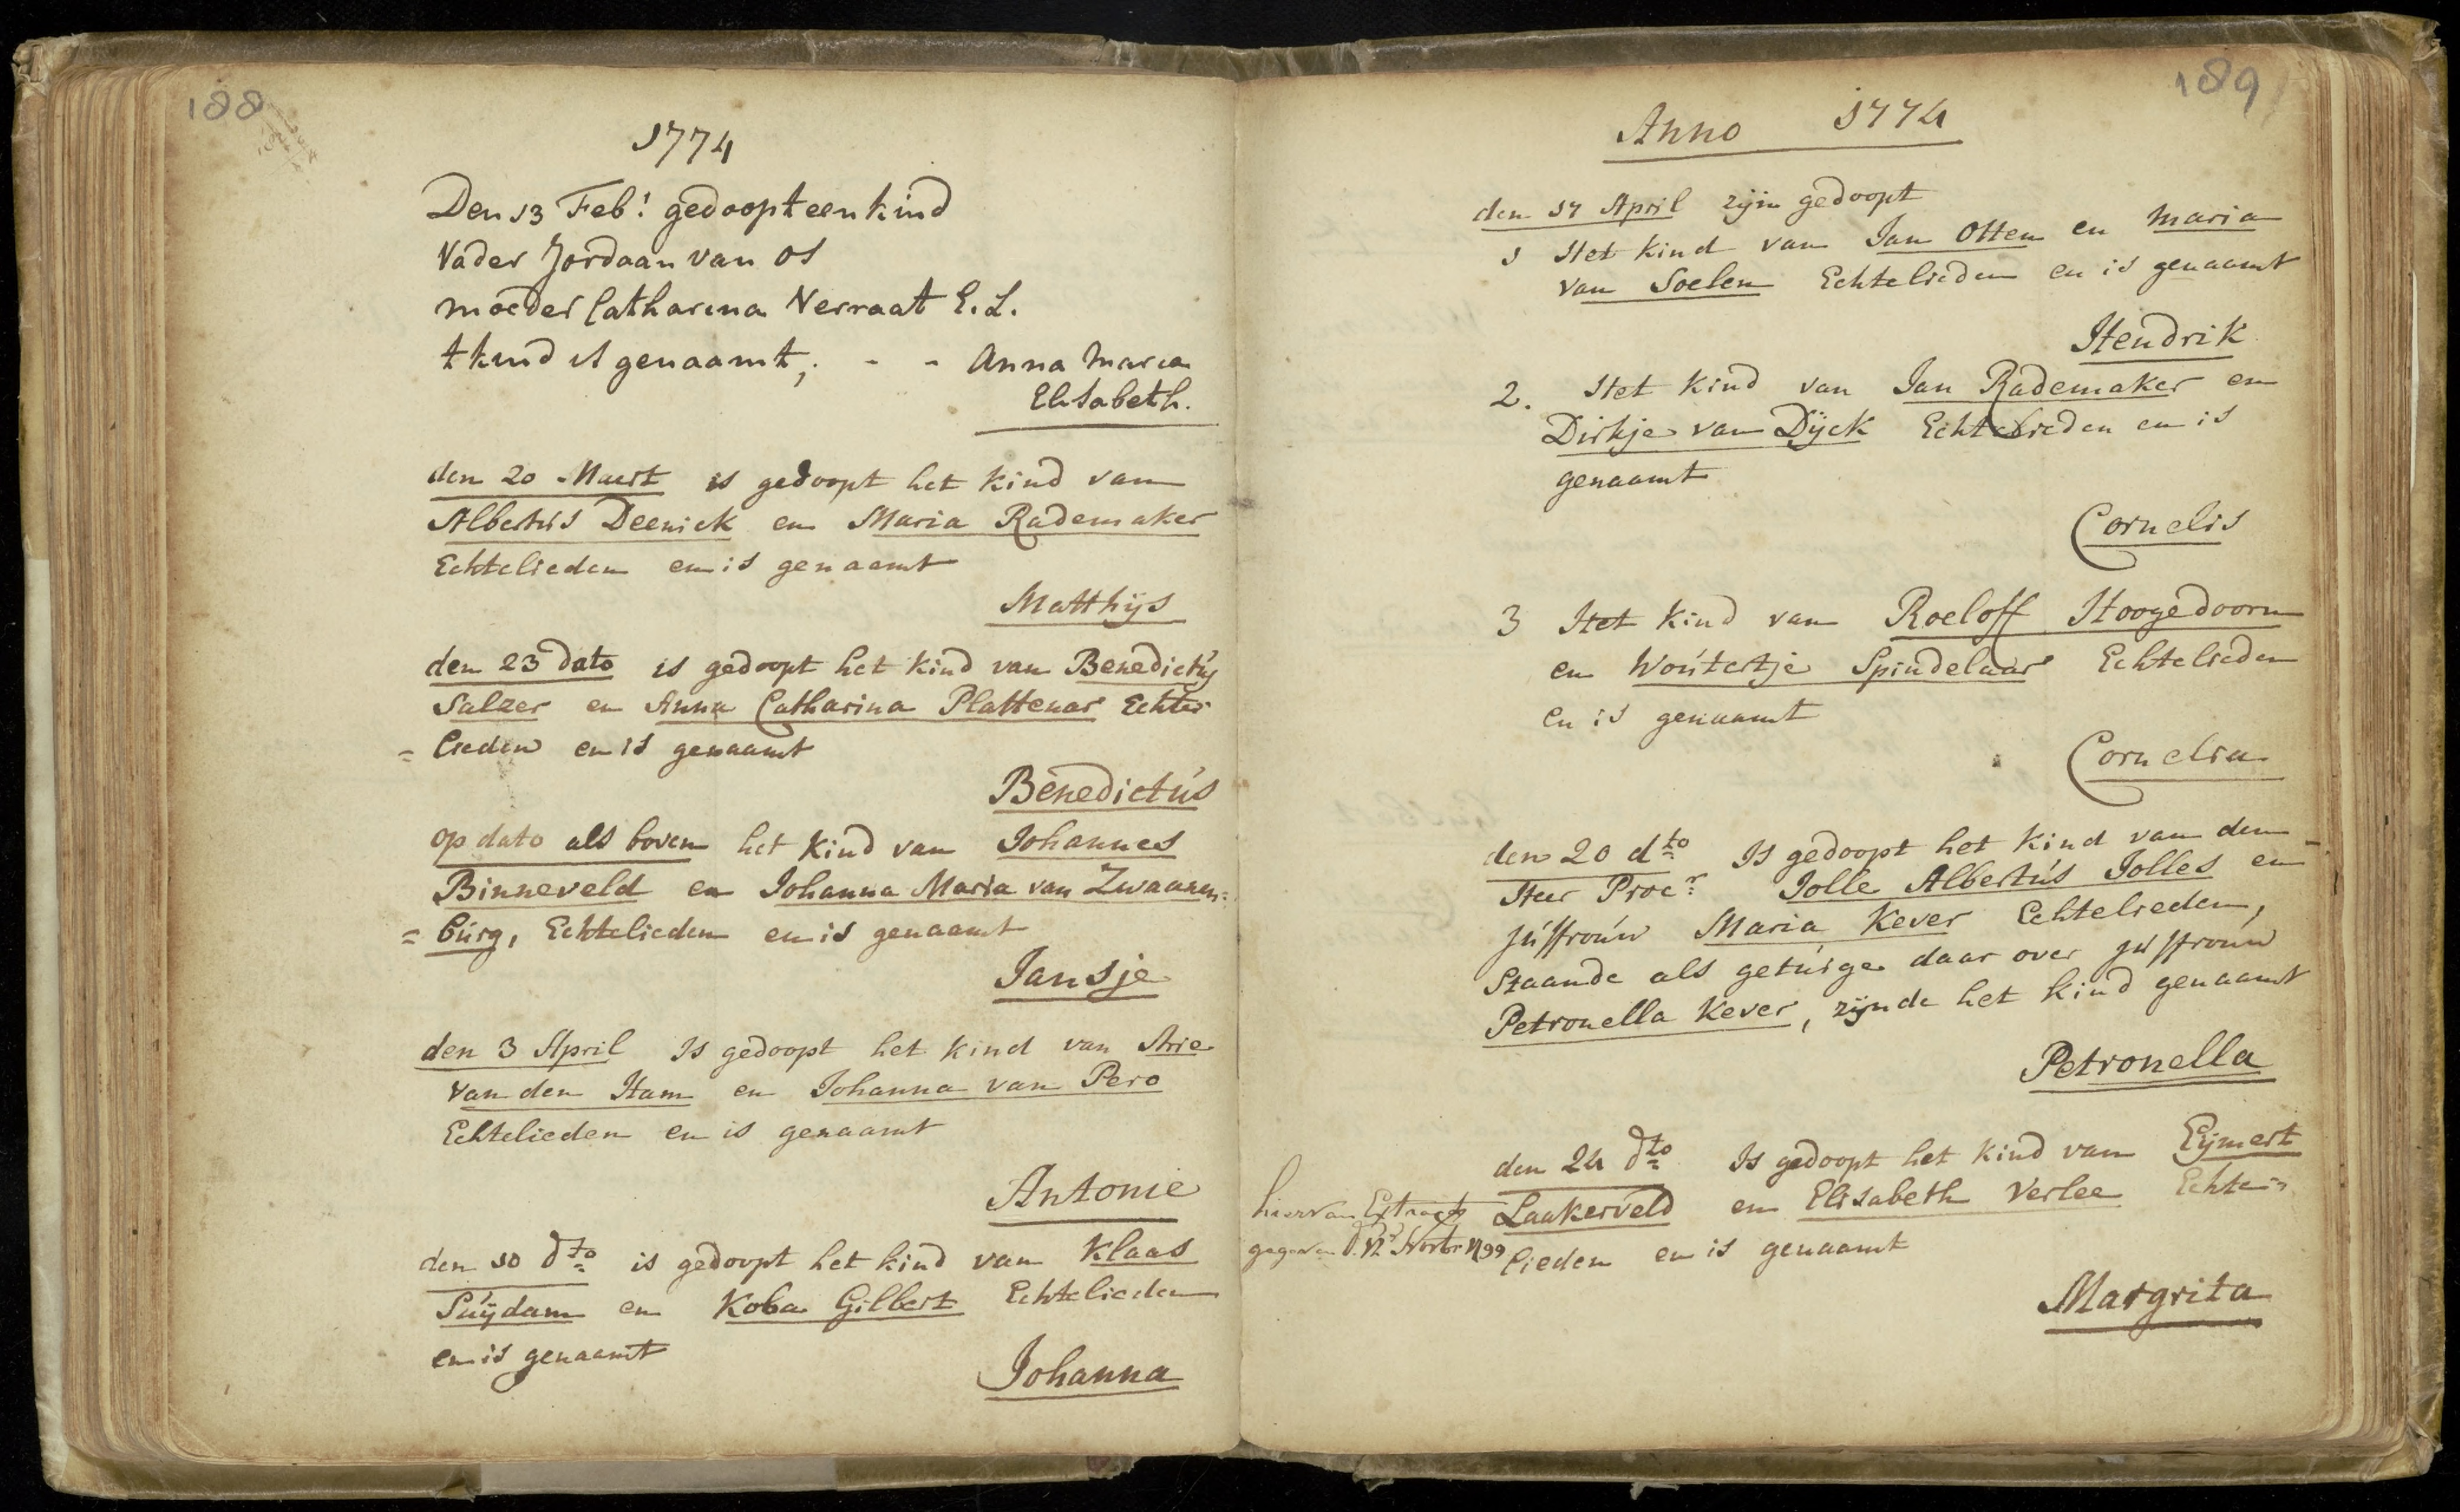 188
1774
Den 13 Feb: gedoopt een kind
Vader Jordaan van Os
moeder Catharina Verraat E. L.
t kind is genaamt, - - Anna Maria
Elisabeth.
den 20 Maert is gedoopt het kind van
Albertus Deenick en Maria Rademaker
Echtelieden en is genaamt
Matthijs
den 23 dato is gedoopt het kind van Benedictus
Salzer en Anna Catharina Plattenar Echte=
= lieden en is genaamt
Benedictús
op dato als boven het kind van Johannes
Binneveld en Johanna Maria van Zwaanen=
= búrg, Echtelieden en is genaamt
Jansje
den 3 April Is gedoopt het kind van Arie
van den Ham en Johanna van Pero
Echtelieden en is genaamt
Antonie
den 10 dto is gedoopt het kind van Klaas
Súijdam en Koba Gilbert Echtelieden
en is genaamt
Johanna
189
Anno 1774
den 17 April zijn gedoopt
1 Het kind van Jan Otten en Maria
van Soelen Echtelieden en is genaamt
Hendrik
2. Het kind van Jan Rademaker en
Dirkje van Dijck Echtelieden en is
genaamt
Cornelis
3 Het kind van Roeloff Hoogedoorn
en Woútertje Spindelaar Echtelieden
en is genaamt
Cornelia
den 20 dto Is gedoopt het kind van den
Heer Procr. Jolle Albertús Jolles en
júffroúw Maria Kever Echtelieden,
Staande als getúige daar over júffroúw
Petronella Kever, zijnde het kind genaamt
Petronella
den 24 dto Is gedoopt het kind van Eijmert
Laakerveld en Elisabeth Verlee Echte=
lieden en is genaamt
Margrita
hiervan Extract
gegeven d. 12 Novbr 1799